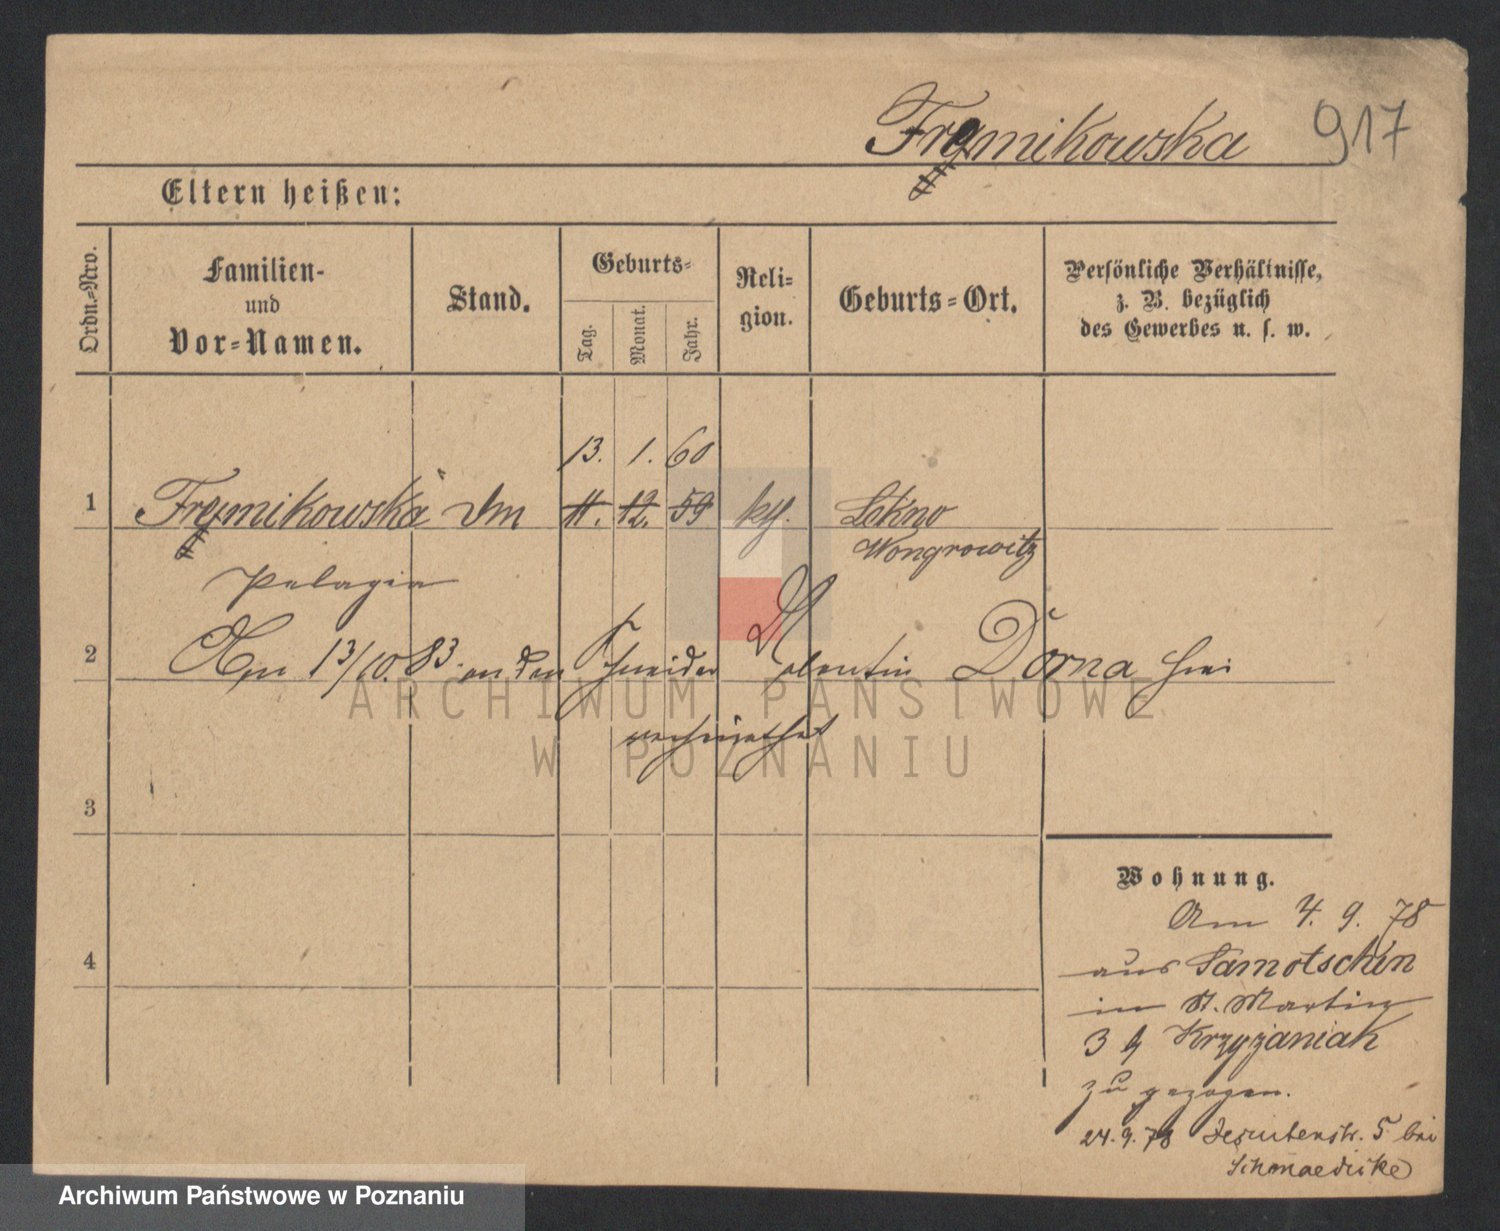 Fremnikowska 917
Eltern heißen:
Ordn.=Nro.
Familien-
und
Vor=Namen.
Stand.
Geburts=
Tag.
Monat.
Jahr.
Reli-
gion.
Geburts=Ort.
Persönliche Verhältnisse,
z. B. bezüglich
des Gewerbes u. s. w.
13. 1. 60
1 11. 12. 59 kth. Lekno
Wongrowitz
Pelagia
2 13/10. 83 an den Schneider Valentin Dorna hier
verheirathet
3
4
Wohnung.
Am 4. 9. 78
aus Samotschin
in St. Martin
3 b/ Krzyżaniak
zu gezogen.
24. 9. 78 Jesuitenstr. 5 bei
Schmaedicke
ARCHIWUM PAŃSTWOWE
W POZNANIU
Archiwum Państwowe w Poznaniu